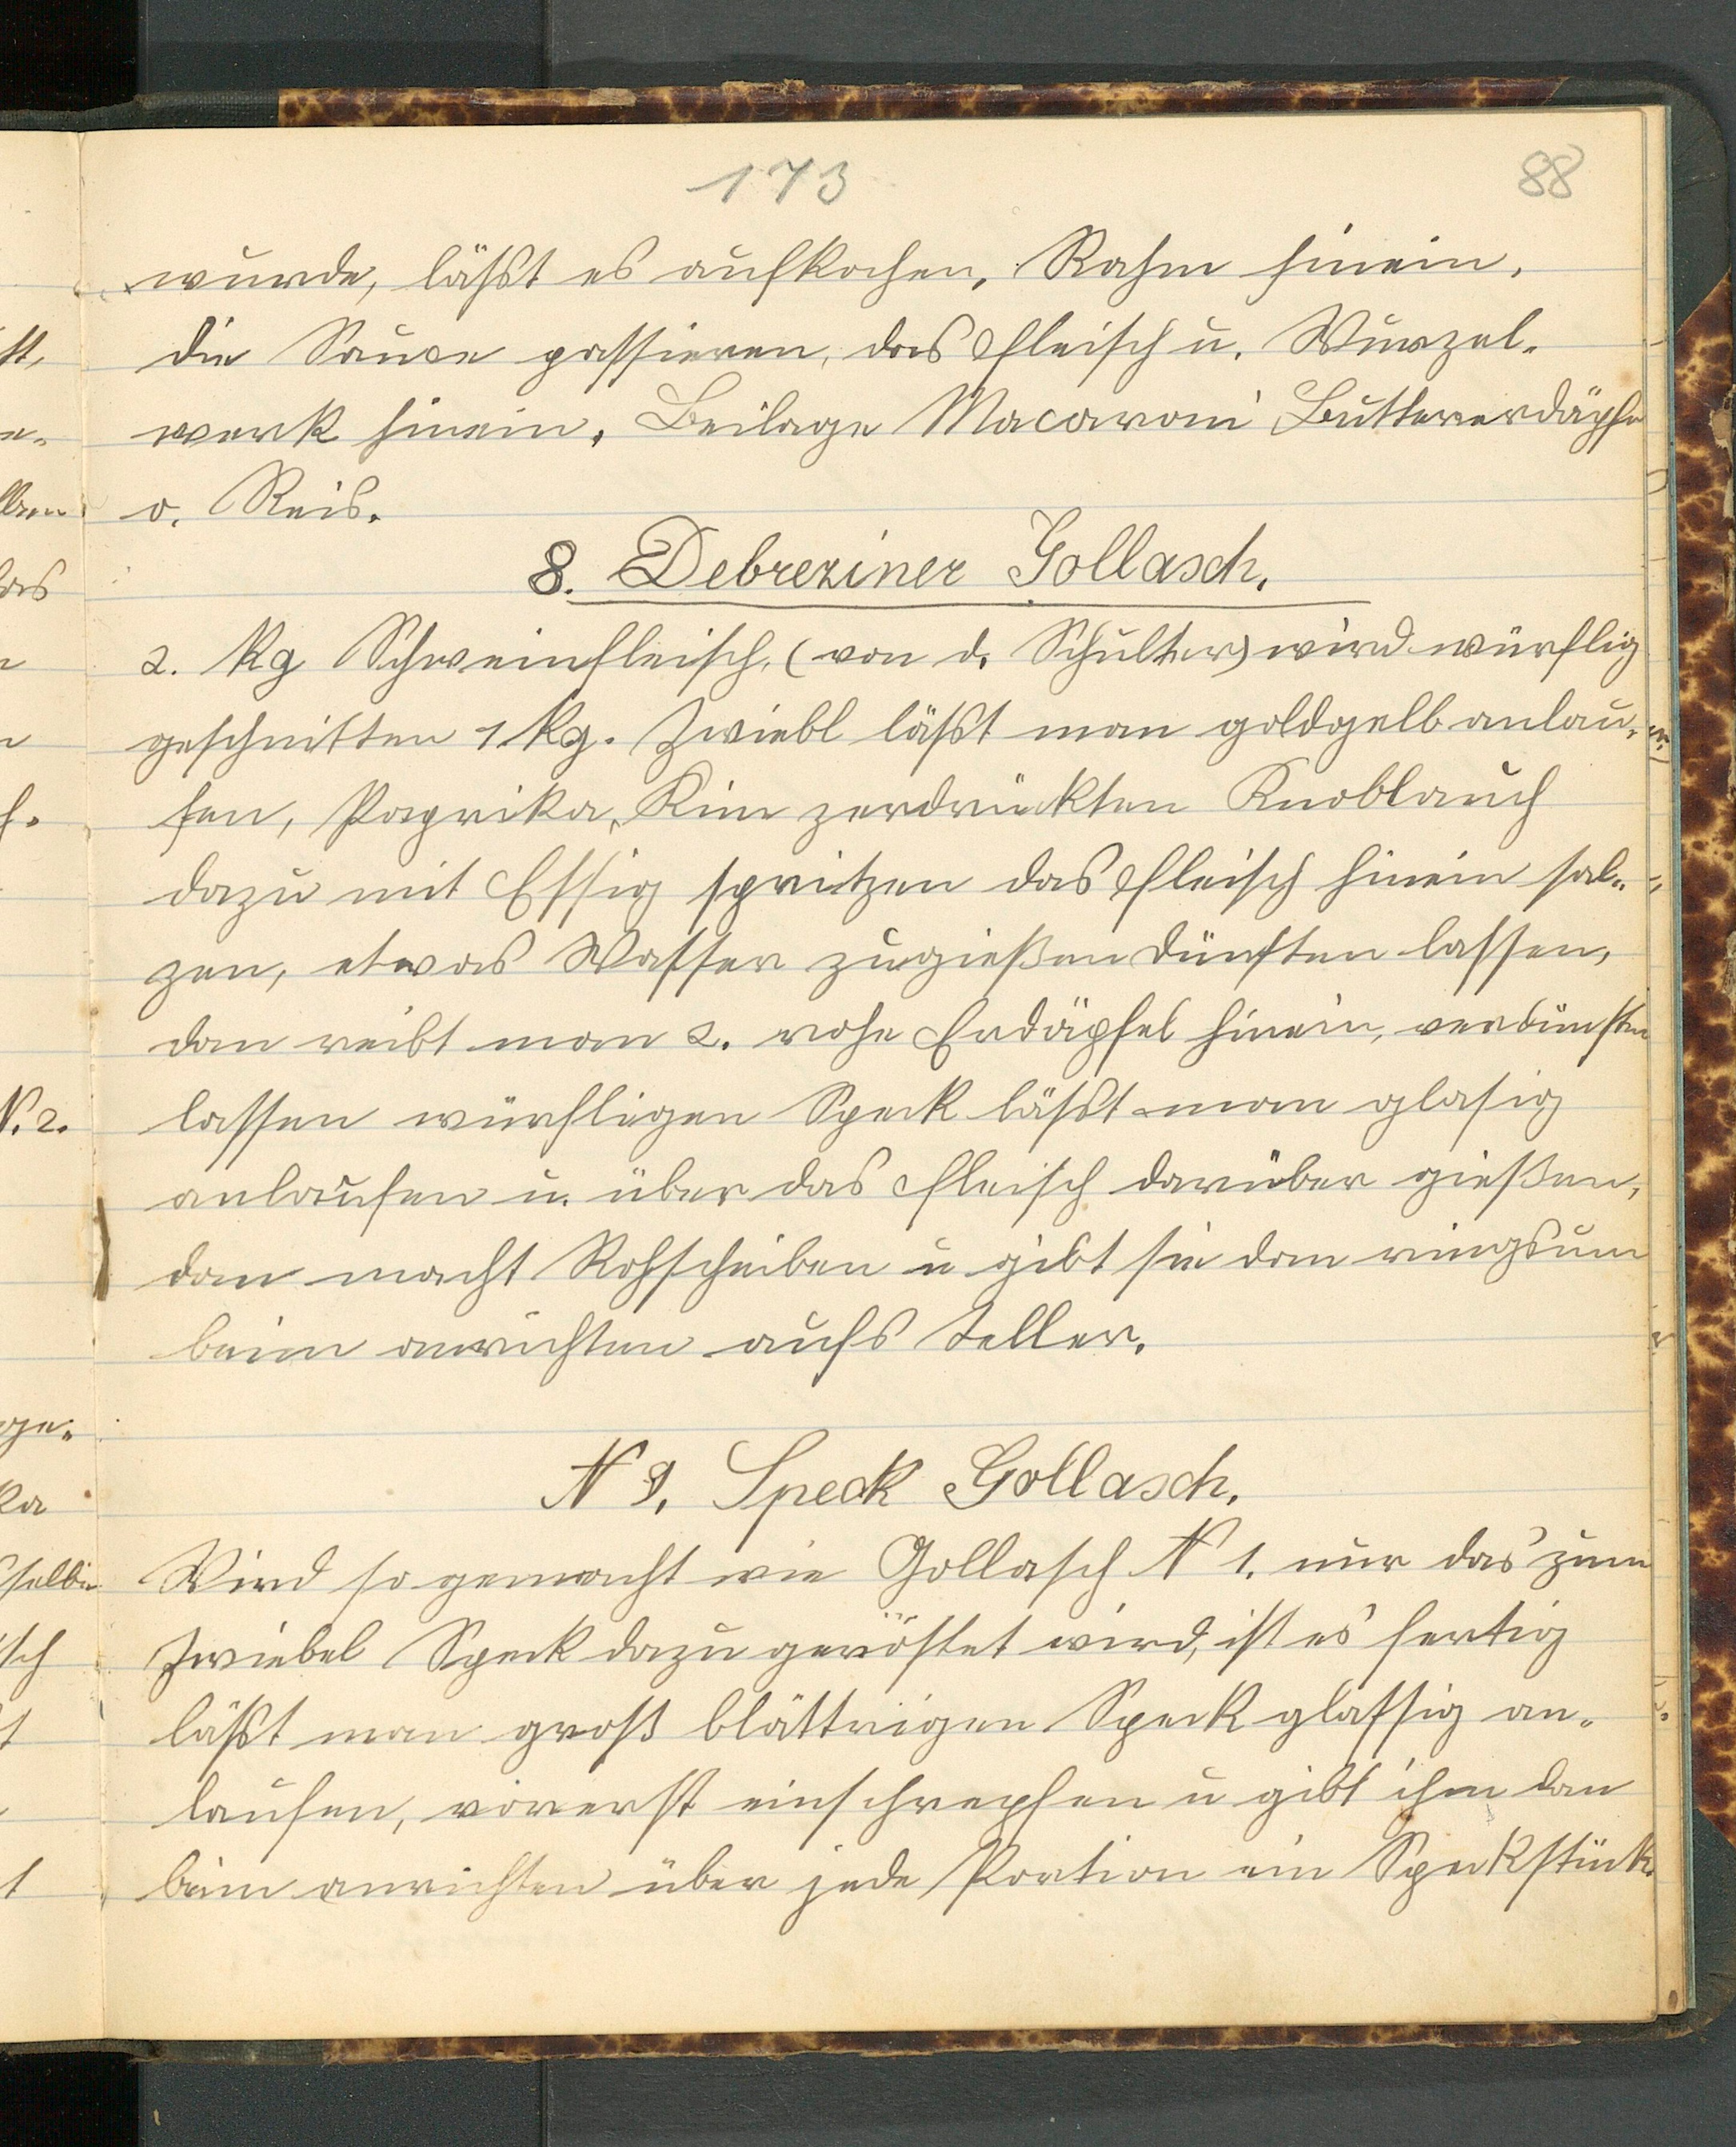 173
88
wurde, läßt es aufkochen, Rahm hinein,
die Sauce passieren, das Fleisch u. Wurzel-
werk hinein. Beilage Macaroni Buttererdäpfe
o. Reis.
8. Debreziner Gollasch.
2. kg Schweinfleisch, (von d. Schulter) wird würflig
geschnitten 1 kg. Zwiebl läßt man goldgelb anlau-
fen, Paprika, Kim zerdrückten Knoblauch
dazu mit Essig spritzen das Fleisch hinein sal-
zen, etwas Wasser zugießen dünsten lassen,
dan reibt man 2. rohe Erdäpfel hinein, verdünsten
lassen würfligen Speck läßt man glasig
anlaufen u. über das Fleisch darüber gießen,
dan macht Rohscheiben u gibt sie dan ringsum
beim anrichten aufs Teller.
N 9. Speck Gollasch.
Wird so gemacht wie Gollasch N 1. nur das zum
Zwiebel Speck dazu geröstet wird, ist es fertig
läßt man groß blättrigen Speck glassig an-
laufen, vorerst einschrepfen u gibt ihm dan
beim anrichten über jede Portion ein Speckstück.